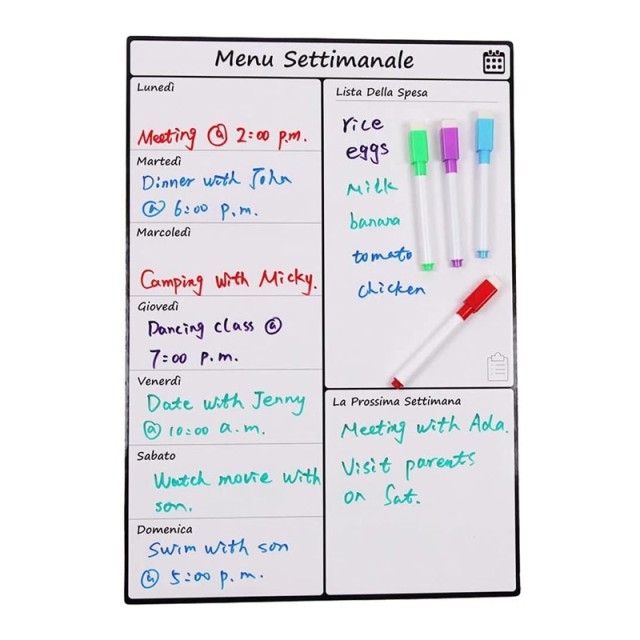 Menu Settimanale
Lunedì
Meeting @ 2:00 p.m.
Martedì
Dinner with John
@ 6:00 p.m.
Marcoledì
Camping with Micky.
Giovedì
Dancing class @
7:00 p.m.
Venerdì
Date with Jenny
@ 10:00 a.m.
Sabato
Watch movie with
son.
Domenica
Swim with son
@ 5:00 p.m.
Lista Della Spesa
rice
eggs
Milk
banana
tomato
chicken
La Prossima Settimana
Meeting with Ada.
Visit parents
on Sat.